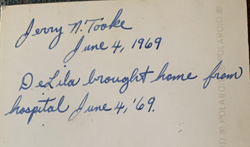 Jerry N. Tooke
June 4, 1969
DeLila brought home from
hospital June 4, '69.
POLAROID ®